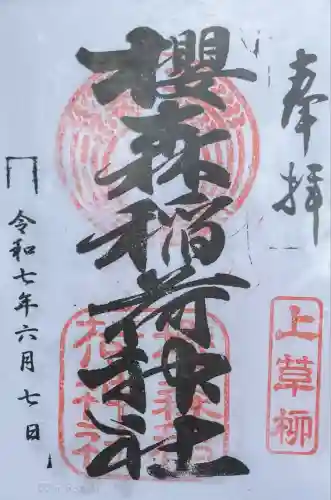 奉拝
上草柳
櫻森稲荷神社
令和七年六月七日